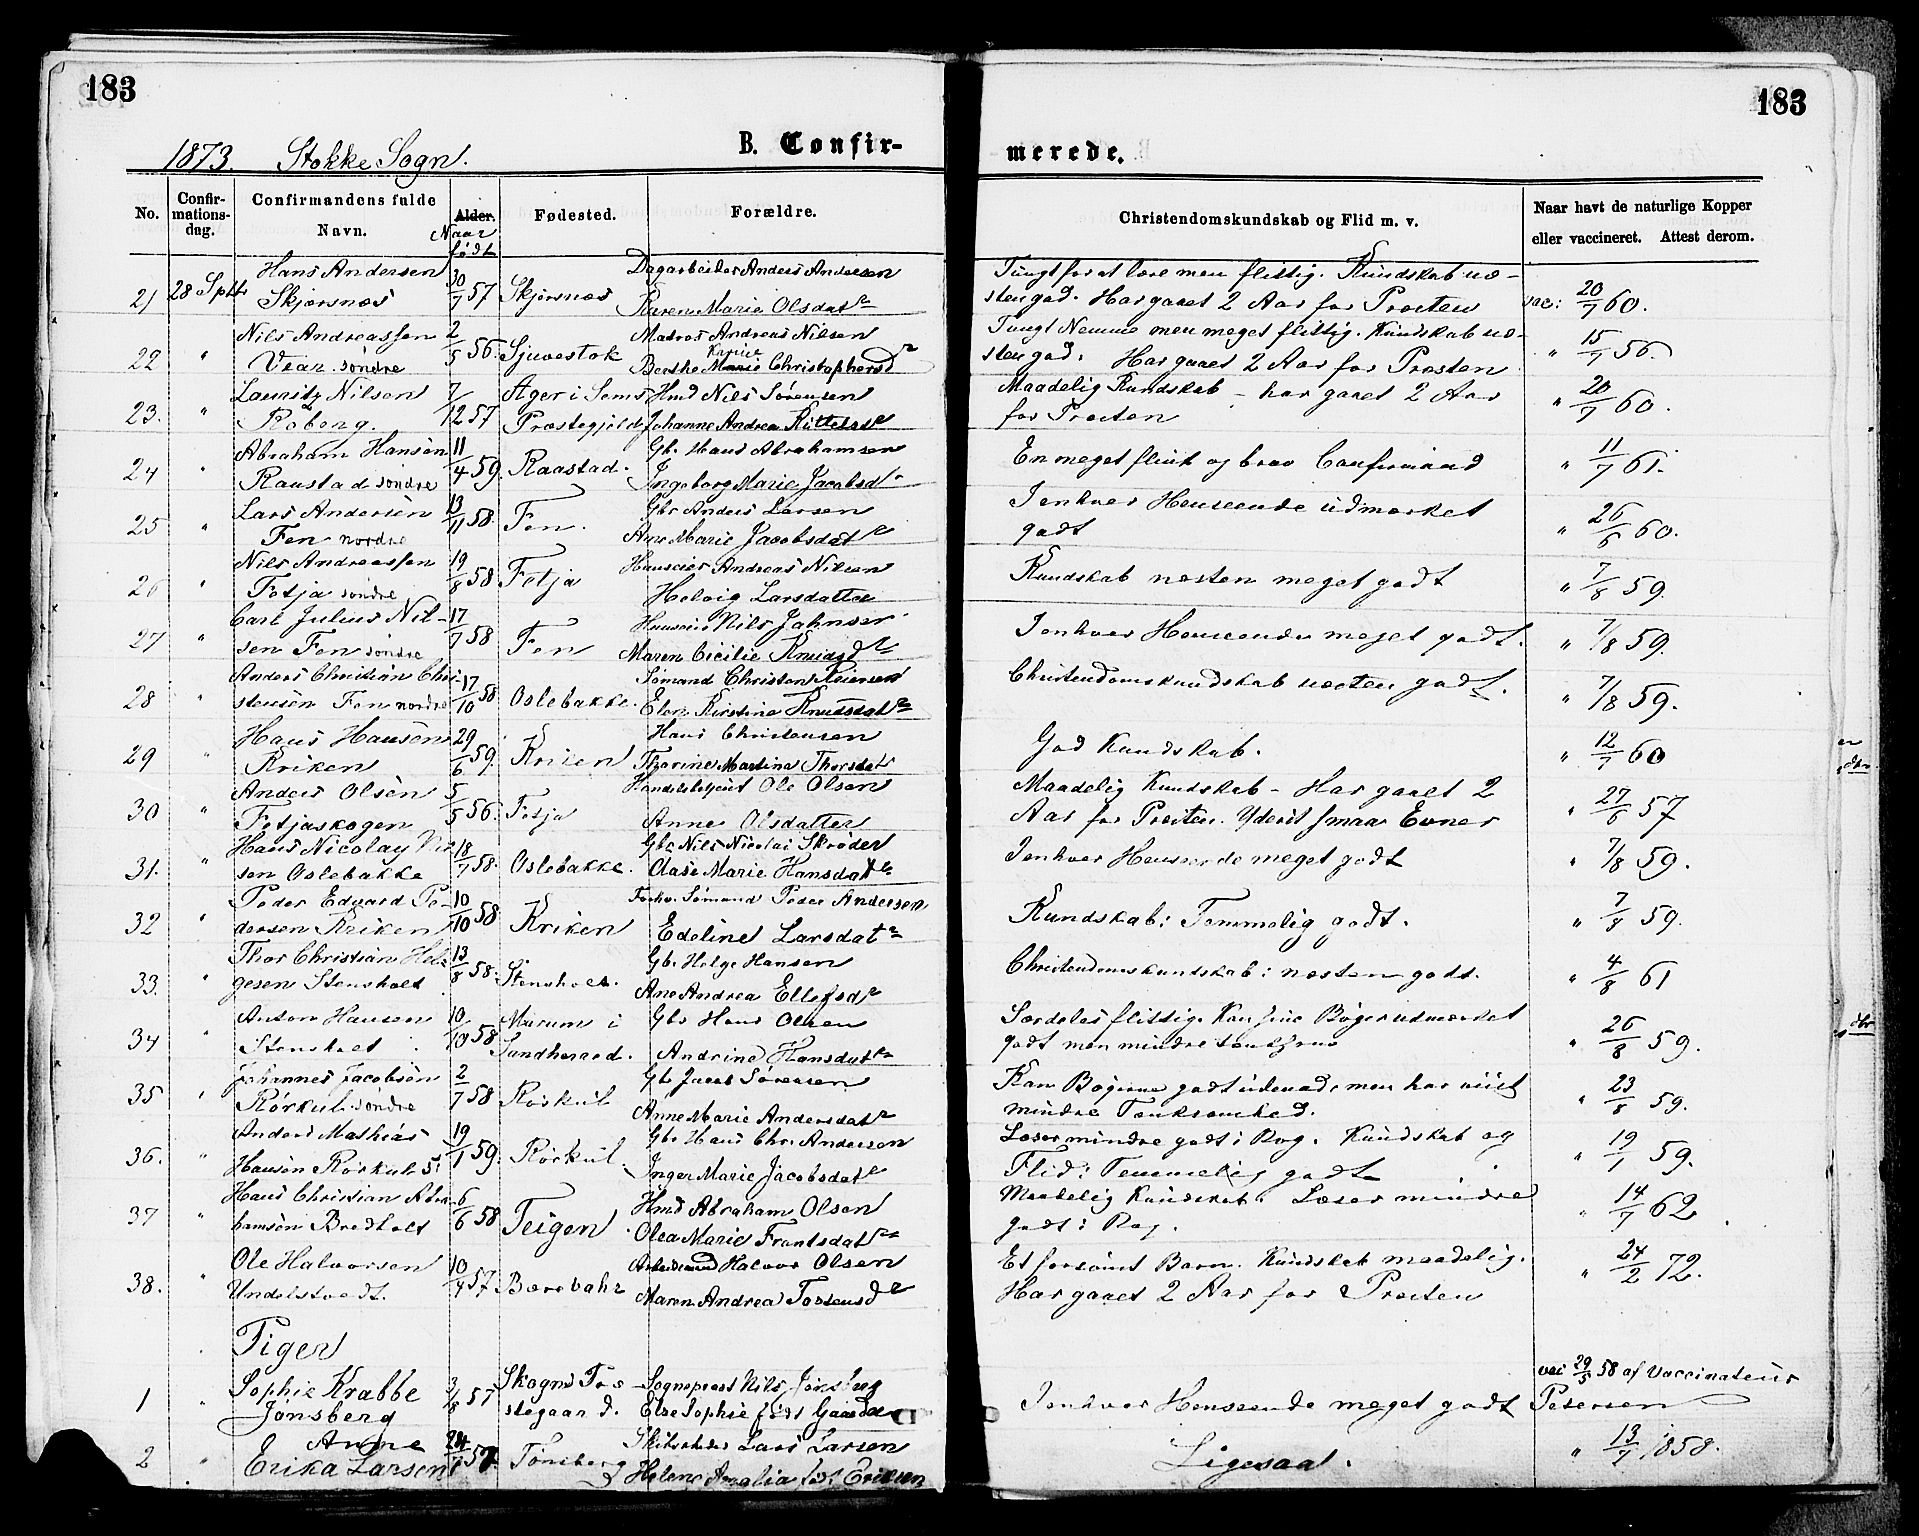 183
183
1873. Stokke Sogn.
B. Confir-
merede.
No.
Confir-
mations-
dag.
Confirmandens fulde
Navn.
Alder.
Naar
født
Fødested.
Forældre.
Christendomskundskab og Flid m. v.
Naar havt de naturlige Kopper
eller vaccineret. Attest derom.
21 28 Septr Hans Andersen 30/7 57 Skjærsnæs Dagarbeider Anders Andersen Tungt for at lære men flittig. Kundskab næ-
Skjærsnæs Karen Marie Olsdatr sten god. Har gaaet 2 Aar for Præsten vac: 20/7 60.
22 " Nils Andreassen 2/5 56. Sjuvestok Matros Andreas Nilsen Tungt Nemme men meget flittig. Kundskab næ-
Vear søndre Berthe Marie Karine Christophersdr sten god. Har gaaet 2 Aar for Præsten " 15/7 56.
23. " Lauritz Nilsen 7/12 57 Ager i Sems Hmd Nils Sørensen Maadelig Kundskab - har gaaet 2 Aar
Raberg. Præstegjeld Johanne Andrea for Præsten " 20/7 60.
24 " Abraham Hansen 11/4 59. Raastad. Gbr. Hans Abrahamsen En meget flink og brav Confirmand " 11/7 61.
Raastad søndre Ingeborg Marie Jacobsdr
25 " Lars Andersen 13/11 58. Fen. Gbr Anders Larsen I enhver Henseende udmærket
Fen nordre Ane Marie Jacobsdatr godt " 26/6 60.
26 " Nils Andreassen 19/8 58 Fetja Huuseier Andreas Nilsen Kundskab næsten meget godt " 7/8 59.
Fetja søndre Helvig Larsdatter
27 " Carl Julius Nil- 17/7 58 Fen Huuseier Nils Johnsen I enhver Henseende meget godt. " 7/8 59.
sen Fen søndre Maren Cecilie Knudsdr
28 " Anders Christian Chri- 17/10 58 Oslebakke. Sømand Christen Christendomskundskab næsten godt. " 7/8 59.
stensen Fen nordre Elen Kirstine Knudsdatr
29 " Hans Hansen 29/6 59. Kriken Hans Christensen God Kundskab. " 12/7 60
Kriken Thorine Martine Thorsdatr
30 " Anders Olsen 5/5 56. Fetja Handelsbetjent Ole Olsen Maadelig Kundskab - Har gaaet 2
Fetjaskogen Anne Olsdatter Aar for Præsten. Yderst smaa Evner " 27/6 57
31. " Hans Nicolay Nil- 18/7 58. Oslebakke. Gbr Nils Nicolai Skrøder I enhver Henseende meget godt " 7/8 59.
sen Oslebakke Aase Marie Hansdatr
32 " Peder Eduard Pe- 10/10 58. Kriken Forhv. Sømand Peder Andersen Kundskab: Temmelig godt. " 7/8 59.
dersen Kriken Edeline Larsdatr
33. " Thor Christian Hel- 13/8 58. Stensholt. Gbr. Helge Hansen Christendomskundskab: næsten godt. " 4/8 61
gesen Stensholt Ane Andrea Ellefsdr
34 " Anton Hansen 10/10 58 Marum i Gbr Hans Olsen Særdeles flittig. Kan sine Bøger udmærket
Stensholt Sandherred. Andrine Hansdatr godt men mindre " 26/8 59.
35 " Johannes Jacobsen 2/7 58 Rørkul Gbr Jacob Sørensen Kan Bøgerne godt udenad, men har viist
Rørkul søndre Anne Marie Andersdatr mindre Tænksomhed. " 23/8 59.
36. " Anders Mathias 19/1 59. Rørkul. Gbr Hans Chr. Andersen Læser mindre godt i Bog. Kundskab og
Hansen Rørkul S: Inger Marie Jacobsdatr Flid: Temmelig godt " 19/1 59.
37 " Hans Christian Abra- 6/6 58 Teigen Hmd Abraham Olsen Maadelig Kundskab. Læser mindre
hamsen Bredholt Olea Marie Frantsdatr godt i Bog. " 14/7 62.
38. " Ole Halvorsen 10/4 57 Arbeidsmand Halvor Olsen Et forsømt Barn. Kundskab maadelig.
Undelstvedt. Maren Andrea Torsensdr Har gaaet 2 Aar for Præsten " 24/2 72.
Piger
1 " Sophie Krabbe 3/8 57 Skogns Præ- Sognepræst Nils Jønsberg I enhver Henseende meget godt vac 29/5 58 af Vaccinateur
Jønsberg stegaard. Else Sophie født Gaarder Petersen
2 " Anne Tønsberg Lars Larsen Ligesaa. " 13/7 1858.
Erika Larsen Helene Amalia født Eriksen